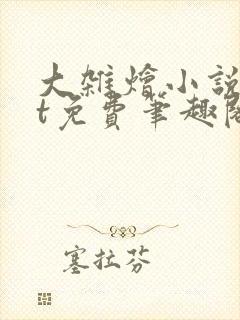 大雜燴小說
t免費筆趣閣
塞拉芬